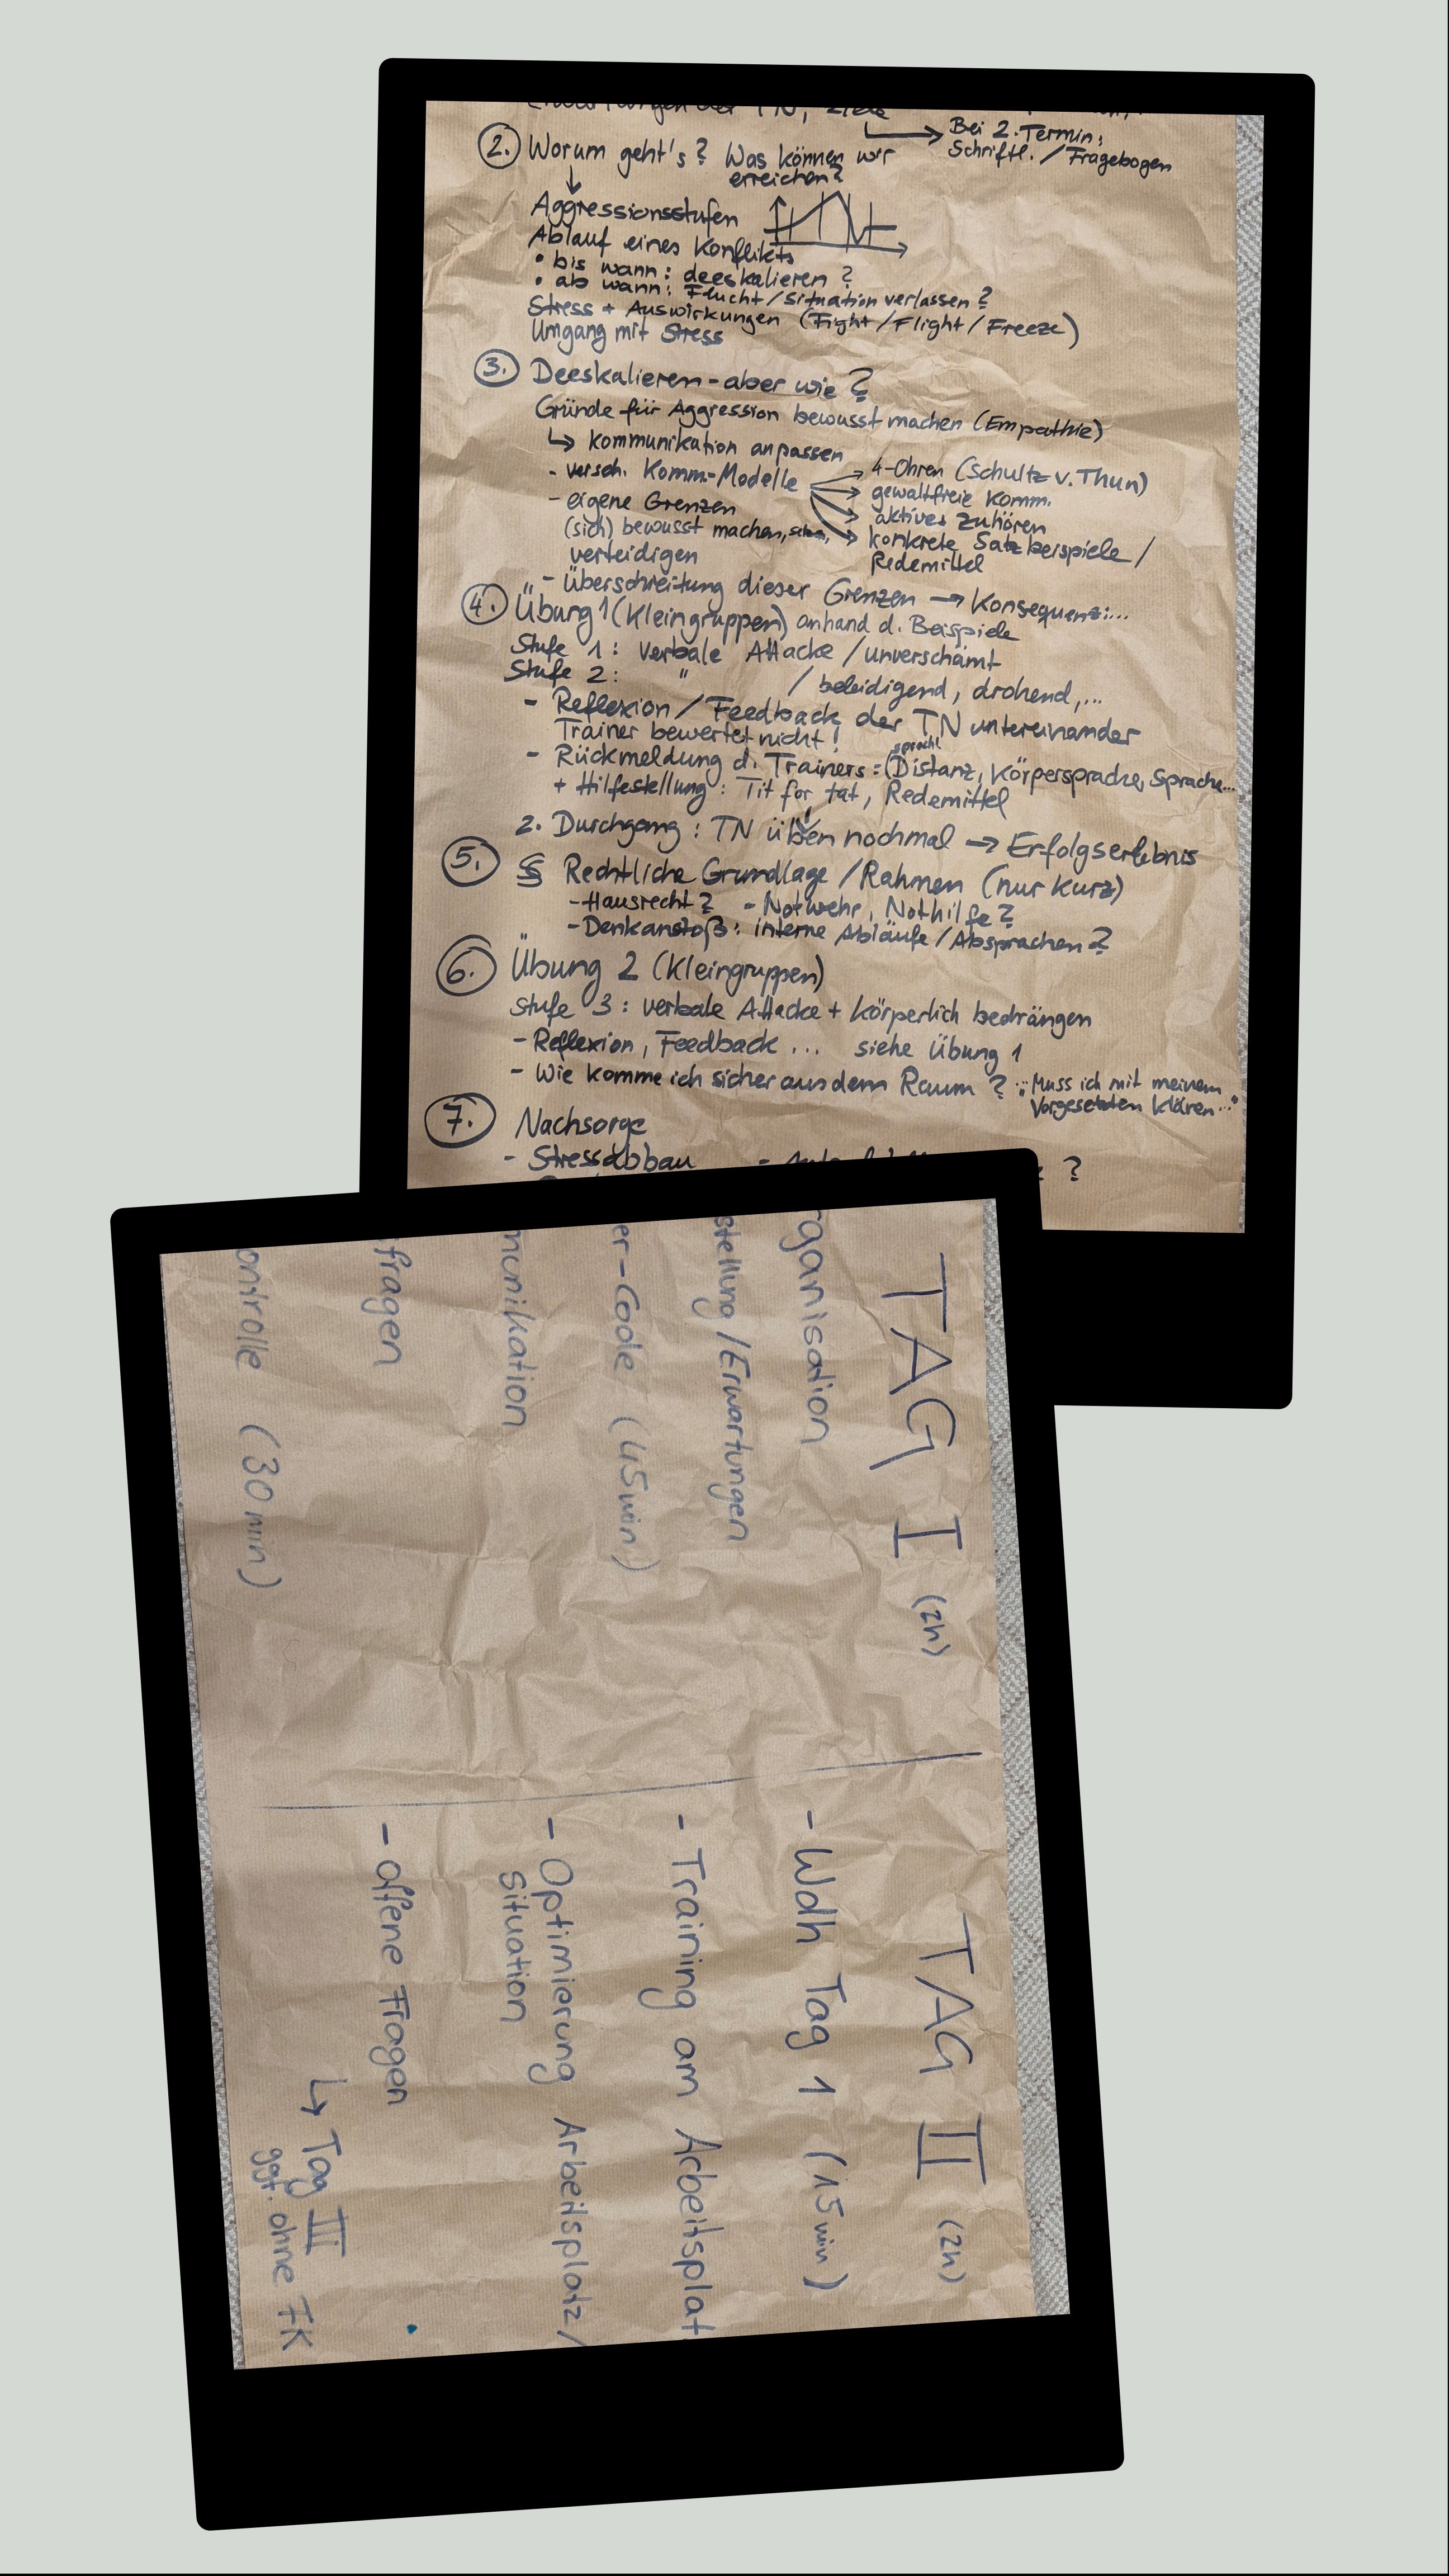 TN,
Bei 2. Termin:
Schriftl. / Fragebogen
2. Worum geht's? Was können wir
erreichen?
Aggressionsstufen
Ablauf eines Konflikts
• bis wann: deeskalieren?
• ab wann: Flucht/Situation verlassen?
Stress + Auswirkungen (Fight/Flight/Freeze)
Umgang mit Stress
3. Deeskalieren - aber wie?
Gründe für Aggression bewusst machen (Empathie)
↳ Kommunikation anpassen
- versch. Komm.-Modelle → 4-Ohren (Schultz v. Thun)
→ gewaltfreie Komm.
→ aktives Zuhören
→ konkrete Satzbeispiele/
Redemittel
- eigene Grenzen
(sich) bewusst machen,
verteidigen
- Überschreitung dieser Grenzen → Konsequenz:...
4. Übung 1 (Kleingruppen) anhand d. Beispiele
Stufe 1: verbale Attacke / unverschämt
Stufe 2: " / beleidigend, drohend,...
- Reflexion / Feedback der TN untereinander
Trainer bewertet nicht!
- Rückmeldung d. Trainers: (Distanz, Körpersprache, Sprache...
+ Hilfestellung: Tit for tat, Redemittel
2. Durchgang: TN üben nochmal → Erfolgserlebnis
5. § Rechtliche Grundlage / Rahmen (nur kurz)
- Hausrecht? - Notwehr, Nothilfe?
- Denkanstoß: interne Abläufe/Absprachen?
6. Übung 2 (Kleingruppen)
Stufe 3: verbale Attacke + körperlich bedrängen
- Reflexion, Feedback ... siehe Übung 1
- Wie komme ich sicher aus dem Raum? Muss ich mit meinem
Vorgesetzten klären..."
7. Nachsorge
- Stressabbau - ?
TAG I (2h)
rganisation
stellung/Erwartungen
er-Code (45min)
munikation
fragen
ontrolle (30min)
TAG II (2h)
- Wdh Tag 1 (15min)
- Training am Arbeitsplat
- Optimierung Arbeitsplatz/
Situation
- Offene Fragen
↳ Tag III
ggf. ohne FK